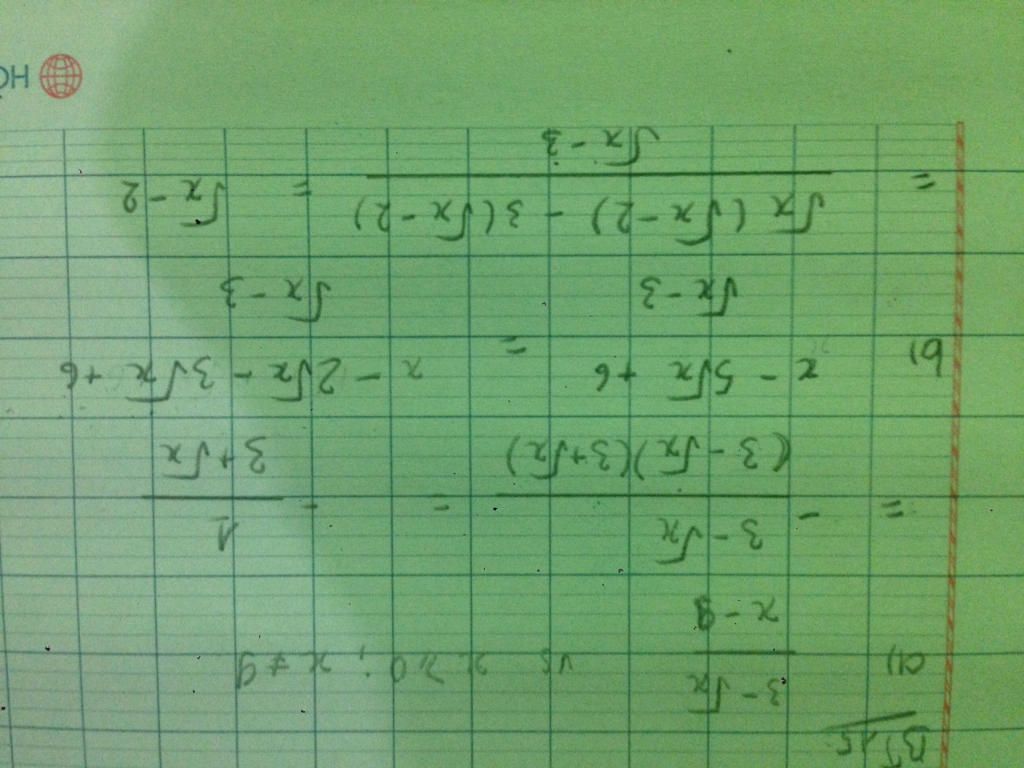 BT 15
a) (3 - √x)/(x - 9) vs x ≥ 0 ; x ≠ 9
= - (3 - √x)/((3 - √x)(3 + √x)) = - 1/(3 + √x)
b) (x - 5√x + 6)/(√x - 3) = (x - 2√x - 3√x + 6)/(√x - 3)
= (√x (√x - 2) - 3(√x - 2))/(√x - 3) = √x - 2